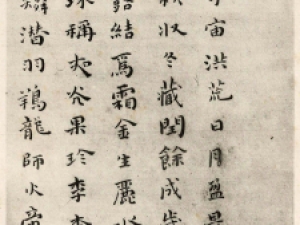 宙洪荒日月盈昃
秋收冬藏閏餘成歲
結為霜金生麗水
珠稱夜光果珍李柰
鱗潛羽翔龍師火帝